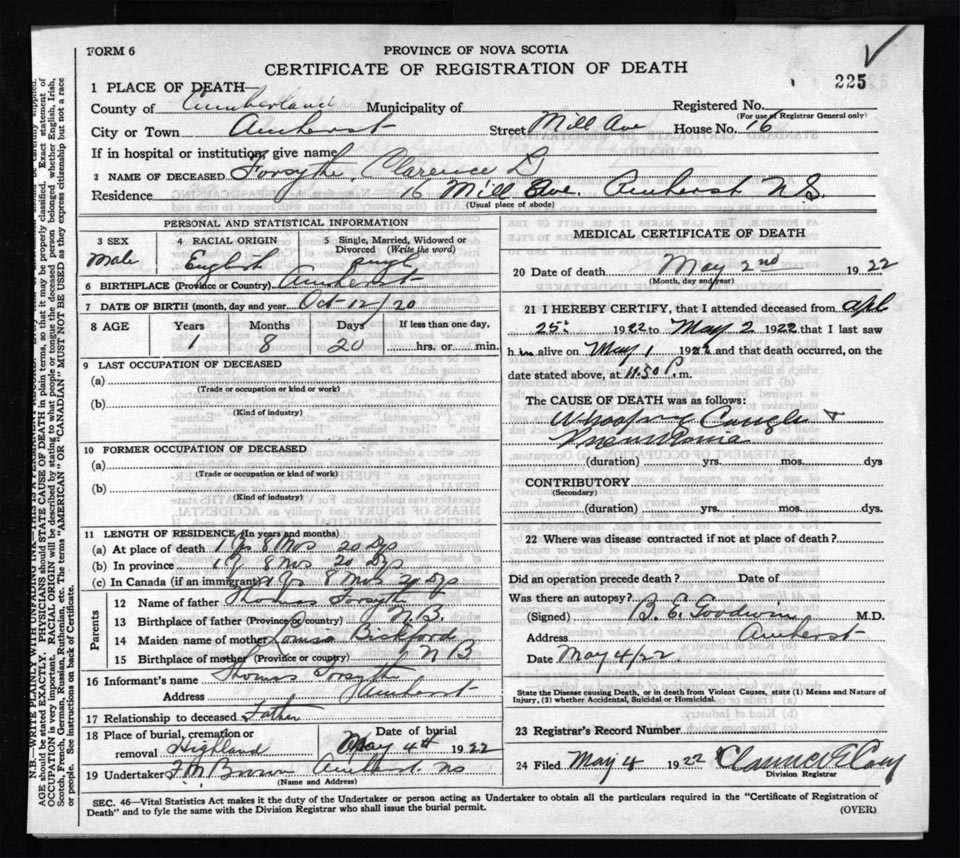 FORM 6
PROVINCE OF NOVA SCOTIA
CERTIFICATE OF REGISTRATION OF DEATH
225
1 PLACE OF DEATH—
County of Cumberland Municipality of Registered No.
(For use of Registrar General only)
City or Town Amherst Street Mill Ave House No. 16
If in hospital or institution, give name
2 NAME OF DECEASED Forsythe, Clarence D
Residence 16 Mill Ave. Amherst N S.
(Usual place of abode)
PERSONAL AND STATISTICAL INFORMATION
3 SEX 4 RACIAL ORIGIN 5 Single, Married, Widowed or Divorced (Write the word)
Male English
6 BIRTHPLACE (Province or Country) Amherst
7 DATE OF BIRTH (month, day and year) Oct 12/20
8 AGE Years Months Days If less than one day,
1 8 20 hrs. or min.
9 LAST OCCUPATION OF DECEASED
(a)
(Trade or occupation or kind or work)
(b)
(Kind of industry)
10 FORMER OCCUPATION OF DECEASED
(a)
(Trade or occupation or kind of work)
(b)
(Kind of industry)
11 LENGTH OF RESIDENCE (In years and months)
(a) At place of death 1 Ys 8 Mos 20 Dys
(b) In province 1 Y 8 Mos 20 Dys
(c) In Canada (if an immigrant) 1 Ys 8 Mos 20 Dys
Parents
12 Name of father Thomas Forsythe
13 Birthplace of father (Province or country) N B.
14 Maiden name of mother Bickford
15 Birthplace of mother (Province or country) N B
16 Informant's name Thomas Forsythe
Address Amherst
17 Relationship to deceased Father
18 Place of burial, cremation or removal Highland Date of burial May 4th 1922
19 Undertaker F M Brown Amherst NS
(Name and Address)
MEDICAL CERTIFICATE OF DEATH
20 Date of death May 2nd 1922
(Month, day and year)
21 I HEREBY CERTIFY, that I attended deceased from Apl
25 1922 to May 2 1922 that I last saw
h im alive on May 1 1922 and that death occurred, on the
date stated above, at 11.50 P. m.
The CAUSE OF DEATH was as follows:
Whooping Cough &
Pneumonia
(duration) yrs. mos. dys
CONTRIBUTORY
(Secondary)
(duration) yrs. mos. dys.
22 Where was disease contracted if not at place of death?
Did an operation precede death? Date of
Was there an autopsy?
(Signed) B. E. Goodwin M.D.
Address Amherst
Date May 4/22.
State the Disease causing Death, or in death from Violent Causes, state (1) Means and Nature of
Injury, (2) whether Accidental, Suicidal or Homicidal.
23 Registrar's Record Number
24 Filed May 4 1922 Clarence
Division Registrar
SEC. 46—Vital Statistics Act makes it the duty of the Undertaker or person acting as Undertaker to obtain all the particulars required in the "Certificate of Registration of
Death" and to fyle the same with the Division Registrar who shall issue the burial permit.
(OVER)
AGE should be stated EXACTLY. PHYSICIANS should STATE CAUSE OF DEATH in plain terms, so that it may be properly classified. Exact statement of
OCCUPATION is very important. RACIAL ORIGIN will be described by stating to what people or tongue the deceased person belonged whether English, Irish,
Scotch, French, German, Russian, Ruthenian, etc. The terms "AMERICAN" OR "CANADIAN" MUST NOT BE USED as they express citizenship but not a race
or people. See instructions on back of Certificate.